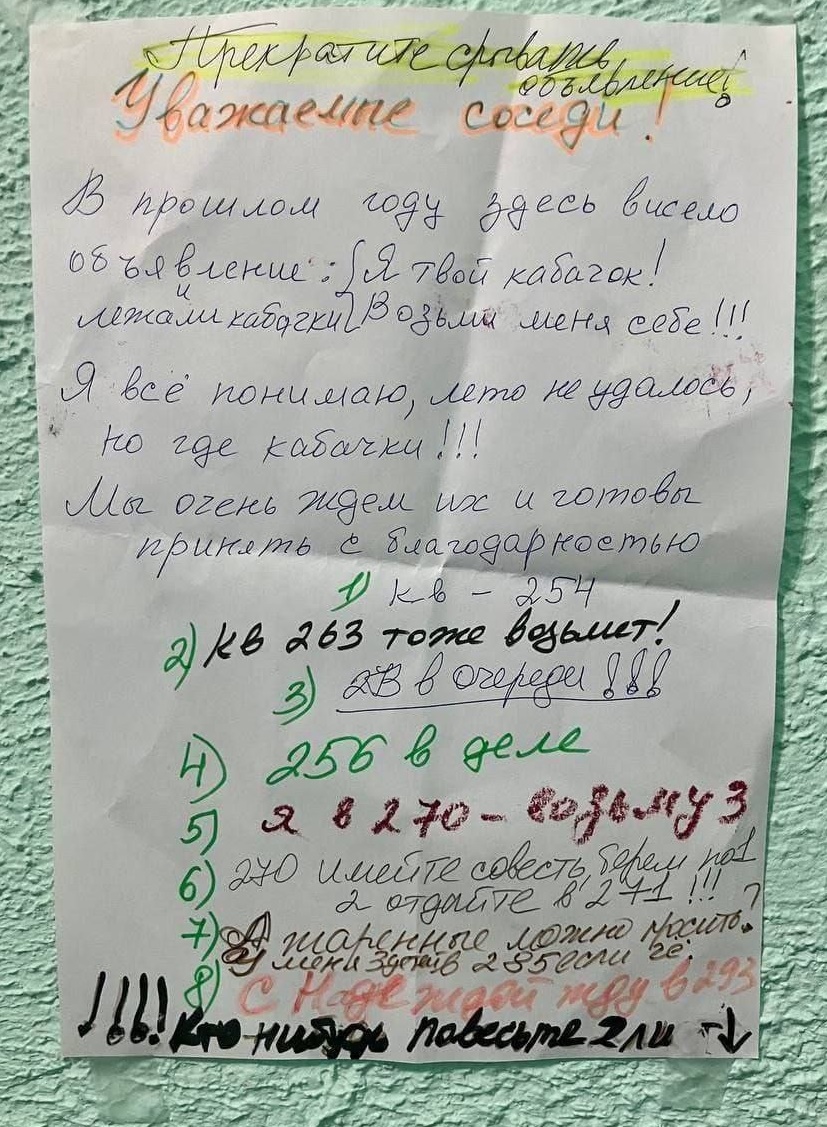 Прекратите срывать
объявление!
Уважаемые соседи!
В прошлом году здесь висело
объявление: Я твой кабачок!
и
лежали кабачки Возьми меня себе!!!
Я всё понимаю, лето не удалось,
но где кабачки!!!
Мы очень ждем их и готовы
принять с благодарностью
1) кв - 254
2) кв 263 тоже возьмет!
3) 2В в очереди!!!
4) 256 в деле
5) я в 270 - возьму 3
6) 270 имейте совесть, берем по 1
2 отдайте в 271!!!
7) А жаренные можно просить?
У меня 3 детей в 285 если чё.
8) С Надеждой жду в 293
!!!! Кто-нибудь повесьте 2 ли-т ↓